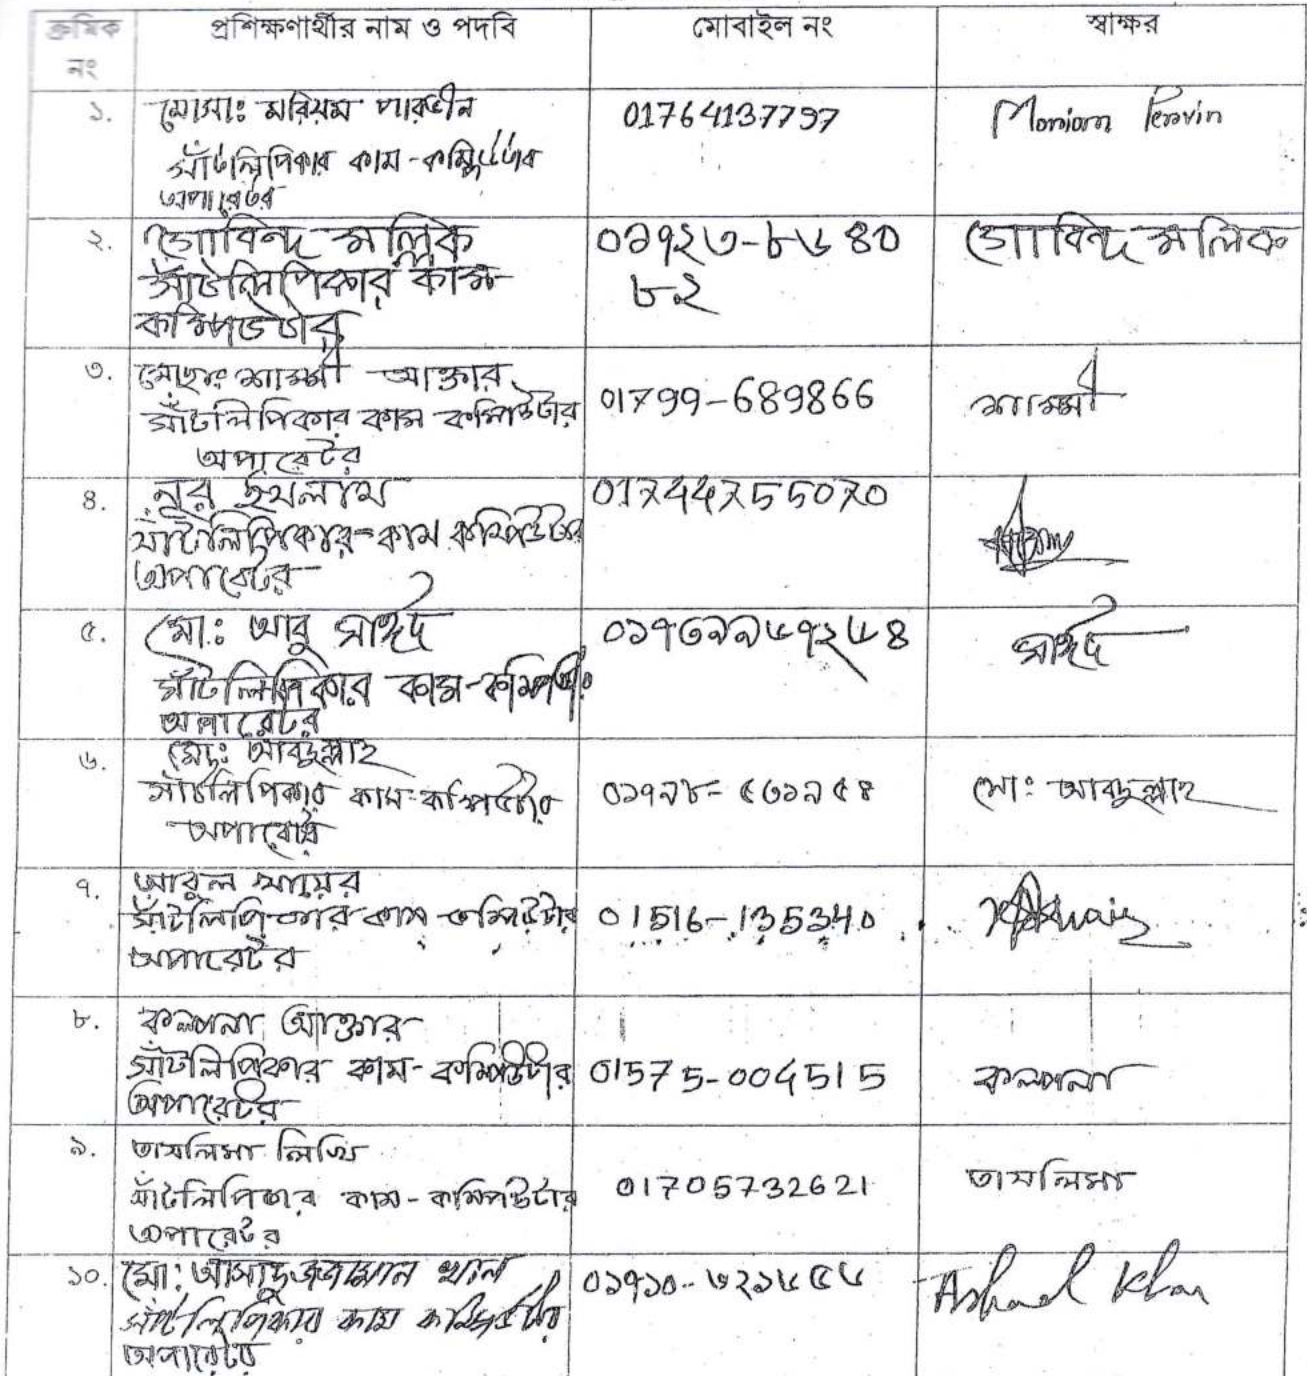 ক্রমিক নং
প্রশিক্ষণার্থীর নাম ও পদবি
মোবাইল নং
স্বাক্ষর
১.
মোসাঃ মরিয়ম পারভীন
সাঁটলিপিকার কাম-কম্পিউটার
অপারেটর
01764137797
Moriom Pervin
২.
গোবিন্দ মল্লিক
সাঁটলিপিকার কাম
কম্পিউটার
০১৭২৩-৮৬৪০
৮২
গোবিন্দ মল্লিক
৩.
মোছাঃ শাম্মী আক্তার
সাঁটলিপিকার কাম কম্পিউটার
অপারেটর
01799-689866
শাম্মী
৪.
নুর ইসলাম
সাঁটলিপিকার-কাম কম্পিউটার
অপারেটর
01744755070
৫.
মোঃ আবু সাঈদ
সাঁটলিপিকার কাম-কম্পিউটার
অপারেটর
সাঈদ
৬.
মোঃ আবদুল্লাহ
সাঁটলিপিকার কাম-কম্পিউটার
অপারেটর
০১৭৯৮-৫৩১৯৫৪
মোঃ আবদুল্লাহ
৭.
আবুল খায়ের
সাঁটলিপিকার কাম কম্পিউটার
অপারেটর
01516-135340
৮.
কল্পনা আক্তার
সাঁটলিপিকার কাম-কম্পিউটার
অপারেটর
01575-004515
কল্পনা
৯.
তাসলিমা লিপি
সাঁটলিপিকার কাম-কম্পিউটার
অপারেটর
01705732621
তাসলিমা
১০.
মোঃ আসাদুজ্জামান খান
সাঁটলিপিকার কাম কম্পিউটার
অপারেটর
০১৭১০-৬২১৬৫৬
Ashad Khan